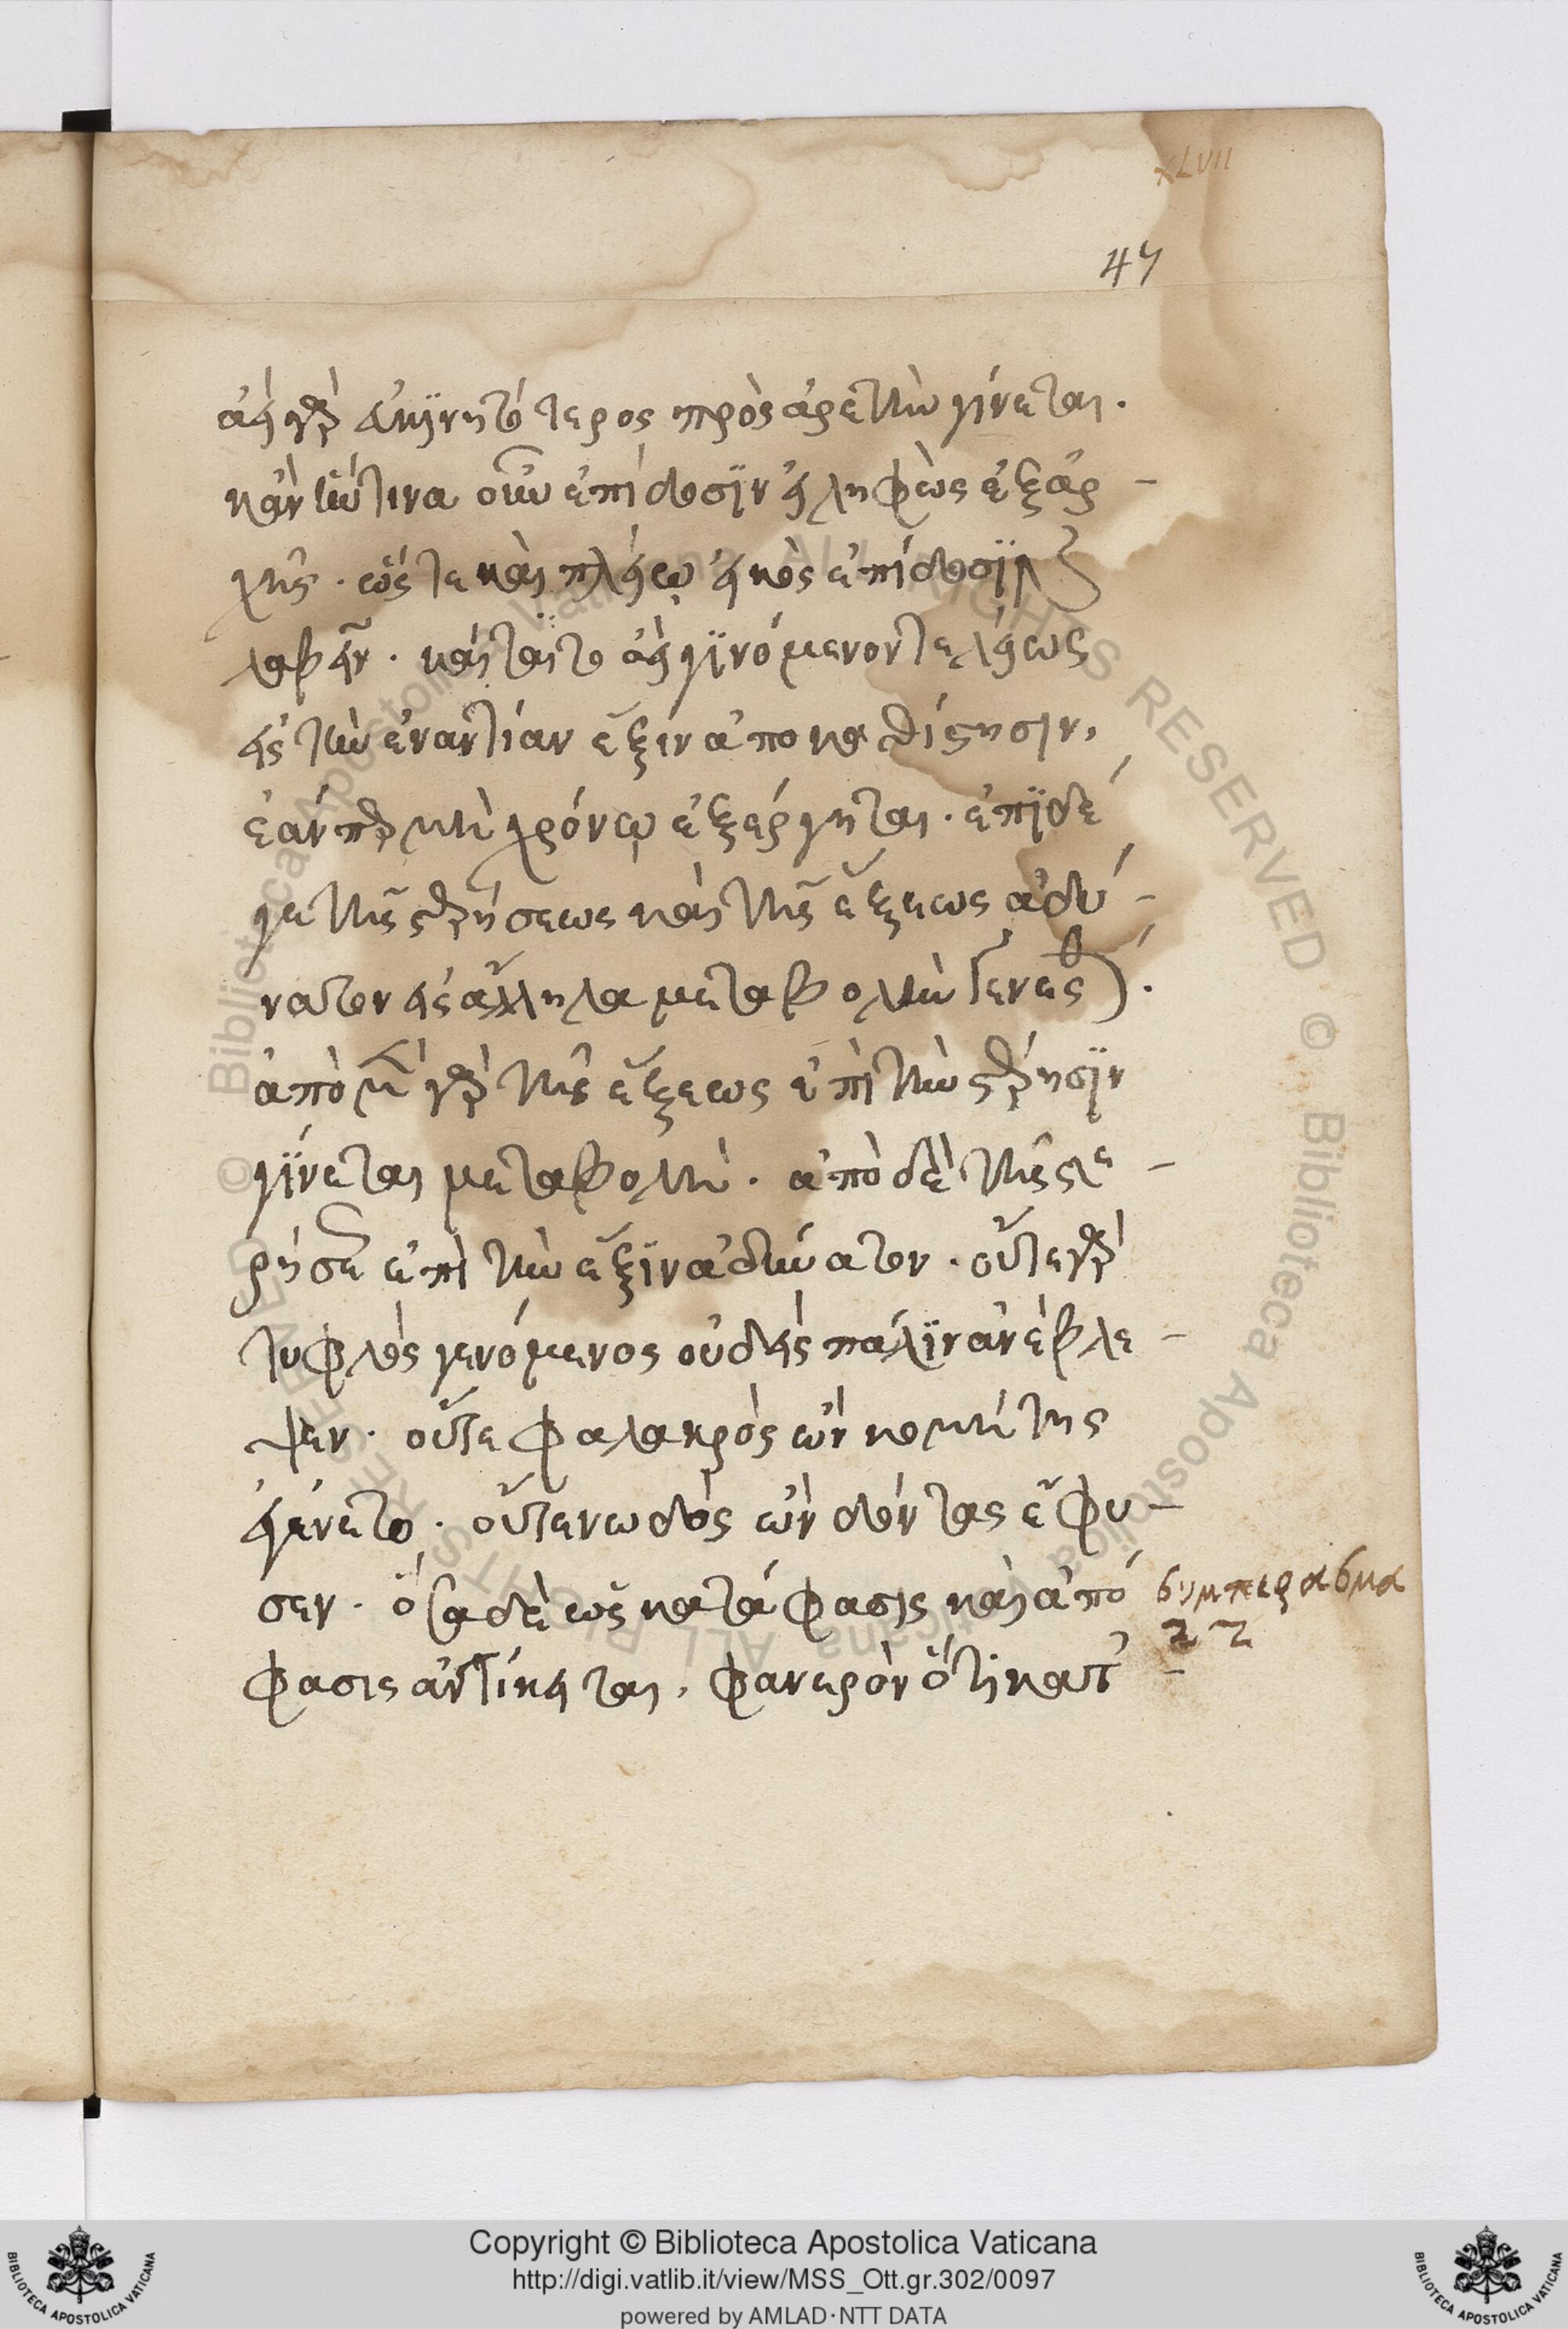 XLVII
47
ἀεὶ γὰρ εὐκινητότερος πρὸς ἀρετὴν γίνεται.
κἂν ἡντινα οὖν ἐπίδοσιν εἰληφὼς ἐξ ἀρ-
χῆς. ὥστε καὶ πλείω εἰκὸς ἐπίδοσιν
λαβεῖν. καὶ τοῦτο ἀεὶ γινόμενον τελείως
εἰς τὴν ἐναντίαν ἕξιν ἀποκαθίστησιν,
ἐάνπερ μὴ χρόνῳ ἐξείργηται. ἐπὶ δέ
γε τῆς στερήσεως καὶ τῆς ἕξεως ἀδύ-
νατον εἰς ἄλληλα μεταβολὴν γενέσθαι.
ἀπὸ μὲν γὰρ τῆς ἕξεως ἐπὶ τὴν στέρησιν
γίνεται μεταβολή. ἀπὸ δὲ τῆς στε-
ρήσεως ἐπὶ τὴν ἕξιν ἀδύνατον. οὔτε γὰρ
τυφλὸς γενόμενος οὐδεὶς πάλιν ἀνέβλε-
ψεν. οὔτε φαλακρὸς ὢν κομήτης
ἐγένετο. οὔτε νωδὸς ὢν ὀδόντας ἔφυ-
σεν. ὅσα δὲ ὡς κατάφασις καὶ ἀπό
φασις ἀντίκειται, φανερὸν ὅτι κατ'-
συμπερασμα